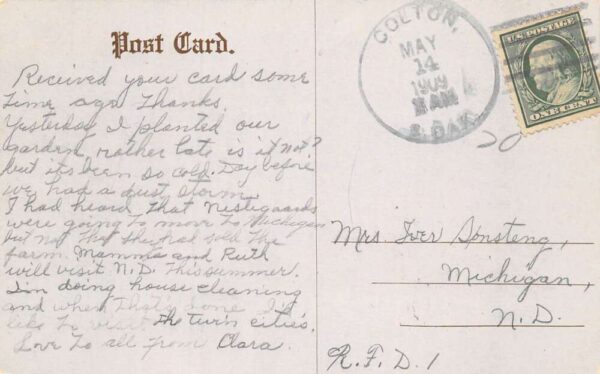 Post Card.
Received your card some
time ago Thanks.
Yesterday I planted our
garden, rather late is it not?
but it's been so cold. Day before
we had a dust storm
I had heard that Nestegaards
were going to move to Michigan
but not that they had sold the
farm. Mamma and Ruth
will visit N.D. this summer.
I'm doing house cleaning
and when that's done I'd
like to visit th twin cities.
Love to all from Clara.
COLTON,
MAY
14
1909
AM
S. DAK.
U.S. POSTAGE
ONE CENT
20
Mrs. Iver Sonsteng,
Michigan,
N.D.
R.F.D. 1